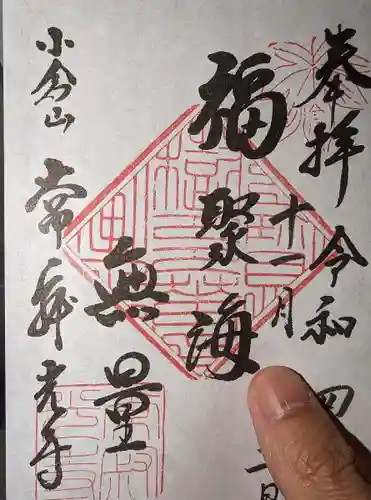 奉拝
令和四
十一月
福聚海
無量
小倉山
常寂光寺